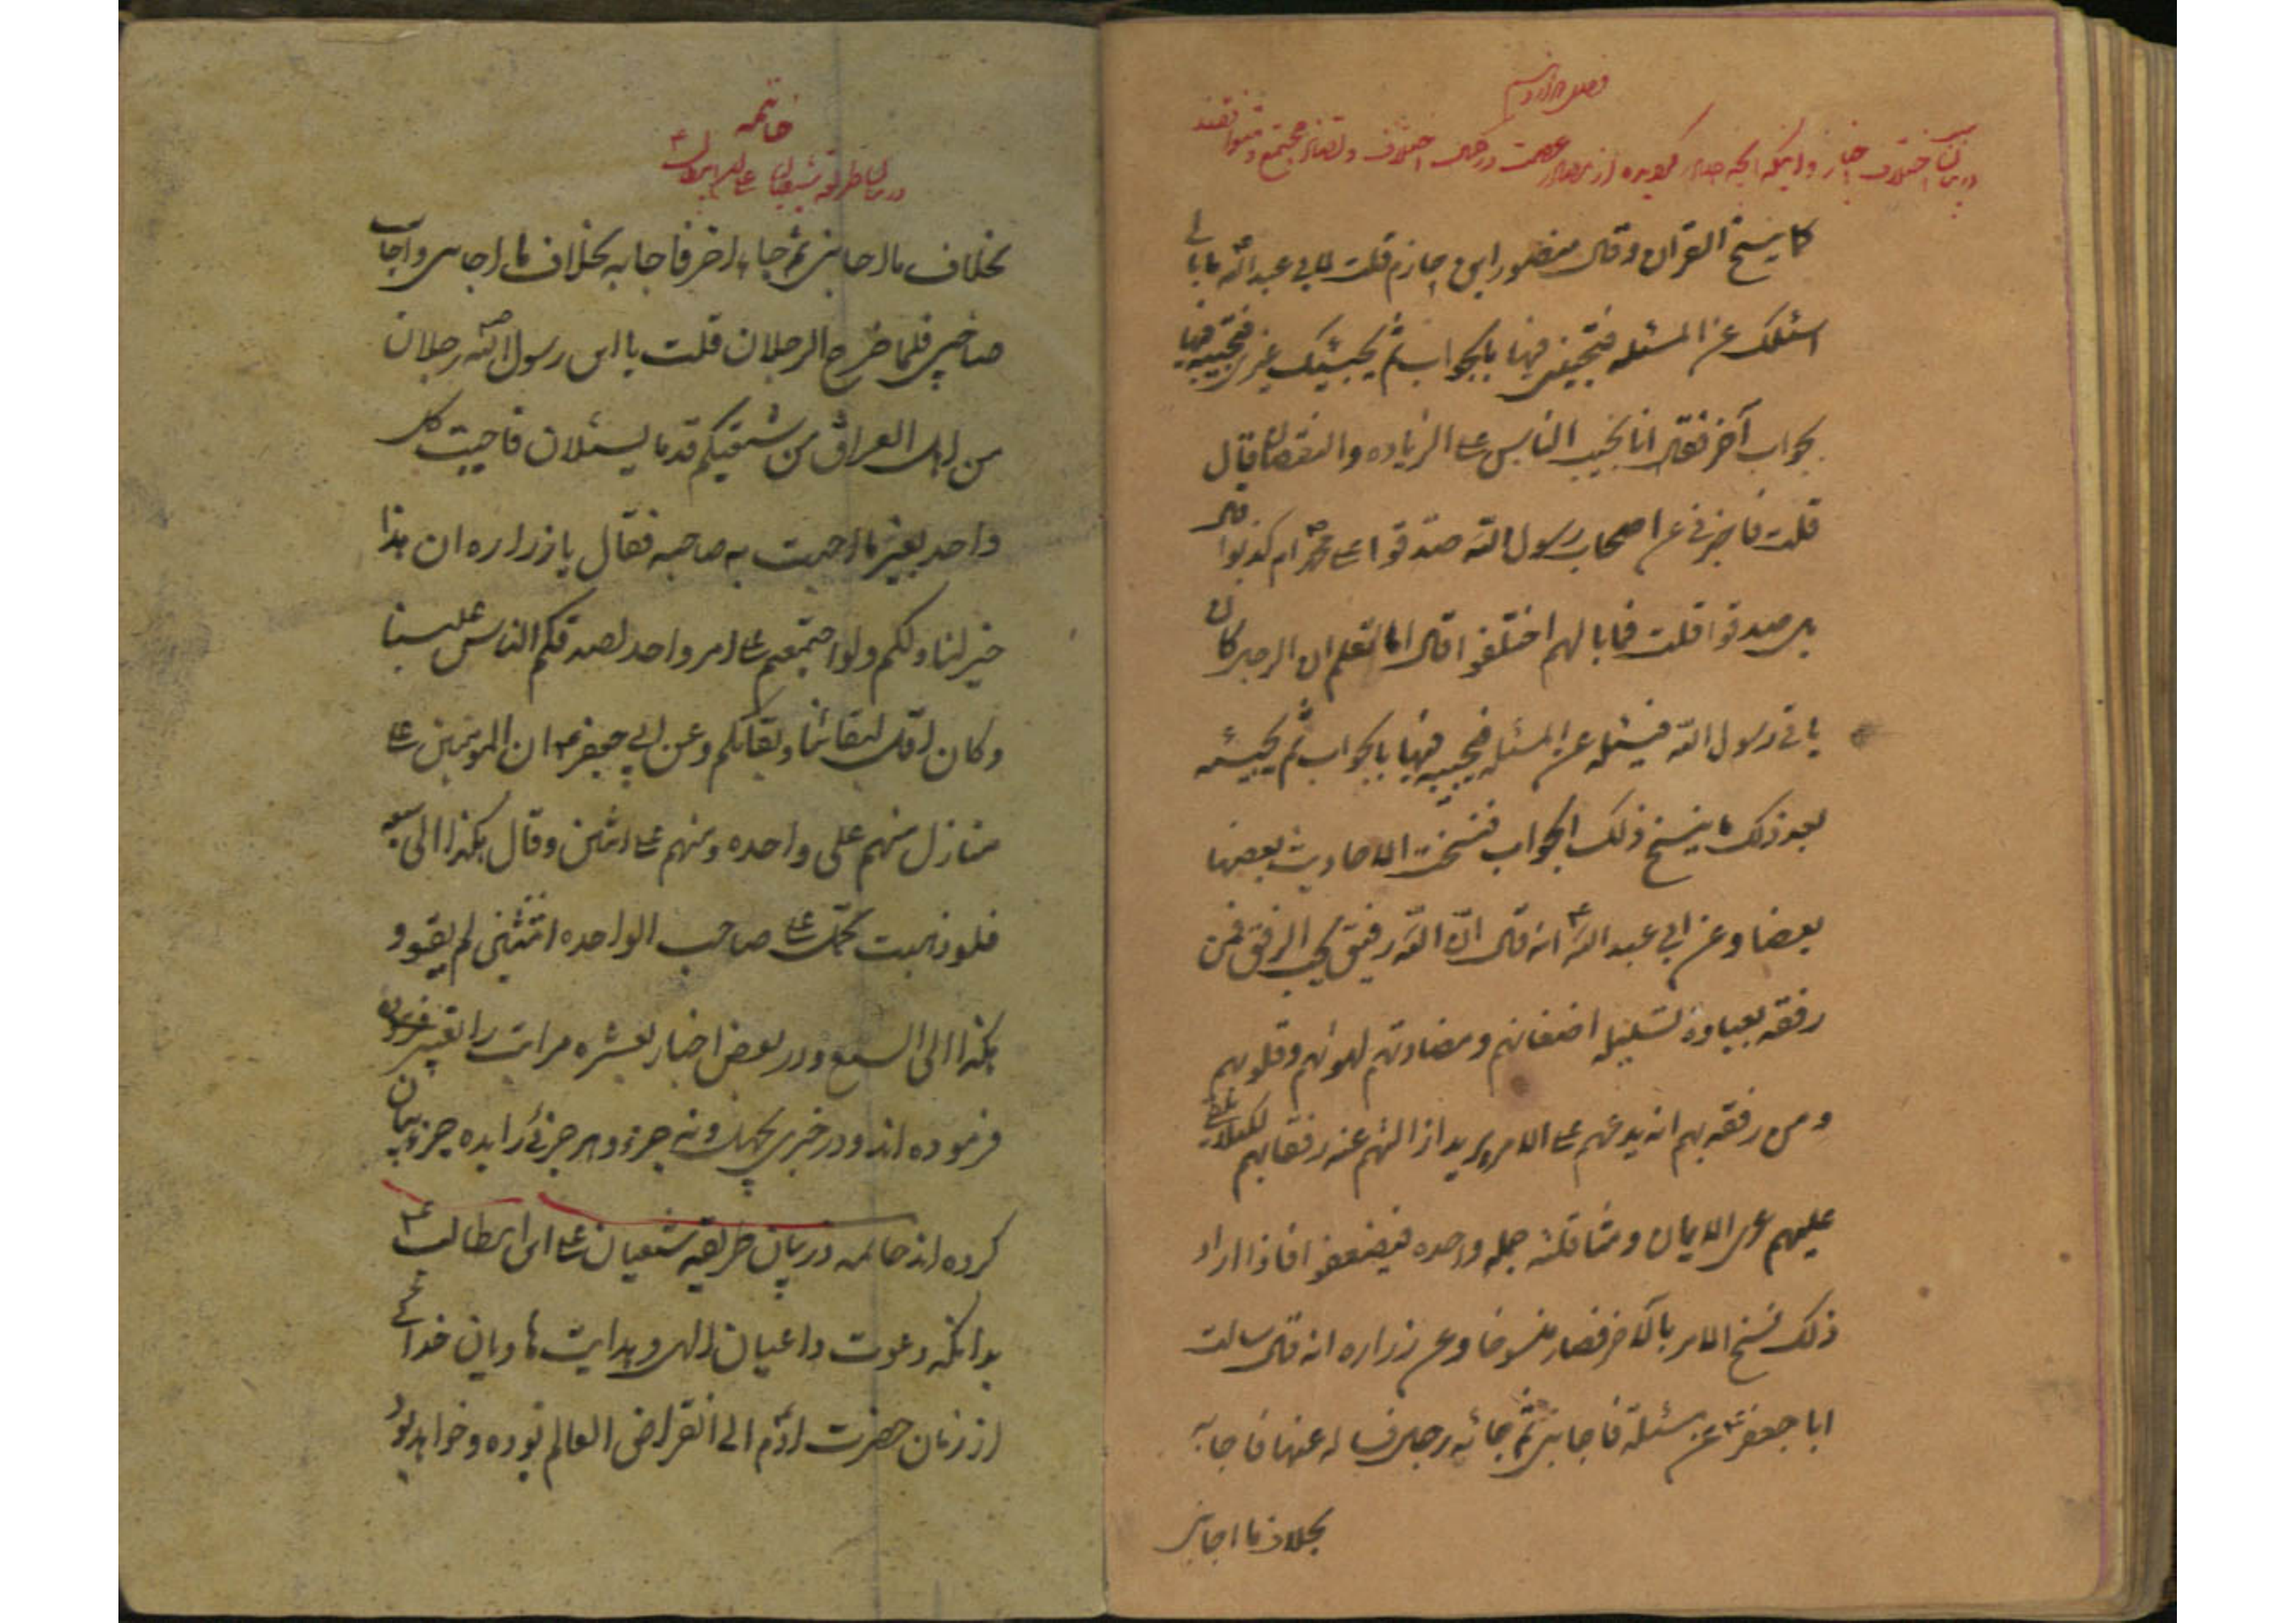 فصل دوازدهم
در بیان اختلاف اخبار و اینکه آنچه صادر گردیده از مصادر عصمت در عین اختلاف و تضاد مجتمع و متوافقند
کما ینسخ القرآن و قال منصور ابن حازم قلت لابی عبد الله ما بالی
اسئلک عن المسئله فتجیبنی فیها بالجواب ثم یجیئک غیری فتجیبه فیها
بجواب آخر فقال انا نجیب الناس علی الزیاده والنقصان قال
قلت فاخبرنی عن اصحاب رسول الله صدقوا علی محمد ام کذبوا قال
بل صدقوا قلت فما بالهم اختلفوا قال اما تعلم ان الرجل کان
یاتی رسول الله فیسئله عن المسئله فیجیبه فیها بالجواب ثم یجیئه
بعد ذلک ما ینسخ ذلک الجواب فنسخت الاحادیث بعضها
بعضا و عن ابی عبد الله ع انه قال ان الله رفیق یحب الرفق فمن
رفقه بعباده تسلیله اضغانهم و مضادتهم لهوائهم و قلوبهم
و من رفقه بهم انه یدعهم علی الامر یرید ازالتهم عنه رفقا بهم لکیلا یلقی
علیهم عری الایمان و مثاقلته جمله واحده فیضعفوا فاذا اراد
ذلک نسخ الامر بالآخر فصار منسوخا و عن زراره انه قال سالت
ابا جعفر ع عن مسئلة فاجابنی ثم جائه رجل فساله عنها فاجابه
بخلاف ما اجابنی
خاتمه
در بیان طریقه شیعیان علی ابن ابیطالب ع
بخلاف ما اجابنی ثم جاء اخر فاجابه بخلاف ما اجابنی و اجاب
صاحبی فلما خرج الرجلان قلت یا ابن رسول الله رجلان
من اهل العراق من شیعتکم قدما یسئلان فاجبت کل
واحد بغیر ما اجبت به صاحبه فقال یا زراره ان هذا
خیر لنا و لکم ولو اجتمعتم علی امر واحد لصدقکم الناس علینا
و کان اقل لبقائنا و بقائکم و عن ابی جعفر ع ان المومنین علی
منازل منهم علی واحده و منهم علی اثنین و قال هکذا الی سبعه
فلو ذهبت تحمل علی صاحب الواحده اثنتین لم یقو و
هکذا الی السبع و در بعض اخبار بعشره مراتب را تعبیر
فرموده اند و در خبری بچهل و نه جزء و هر جزئی را بده جزء بیان
کرده اند خاتمه در بیان طریقه شیعیان علی ابن ابیطالب ع
بدانکه دعوت داعیان الهی و هدایت هادیان خدائی
از زمان حضرت آدم الی انقراض العالم بوده و خواهد بود